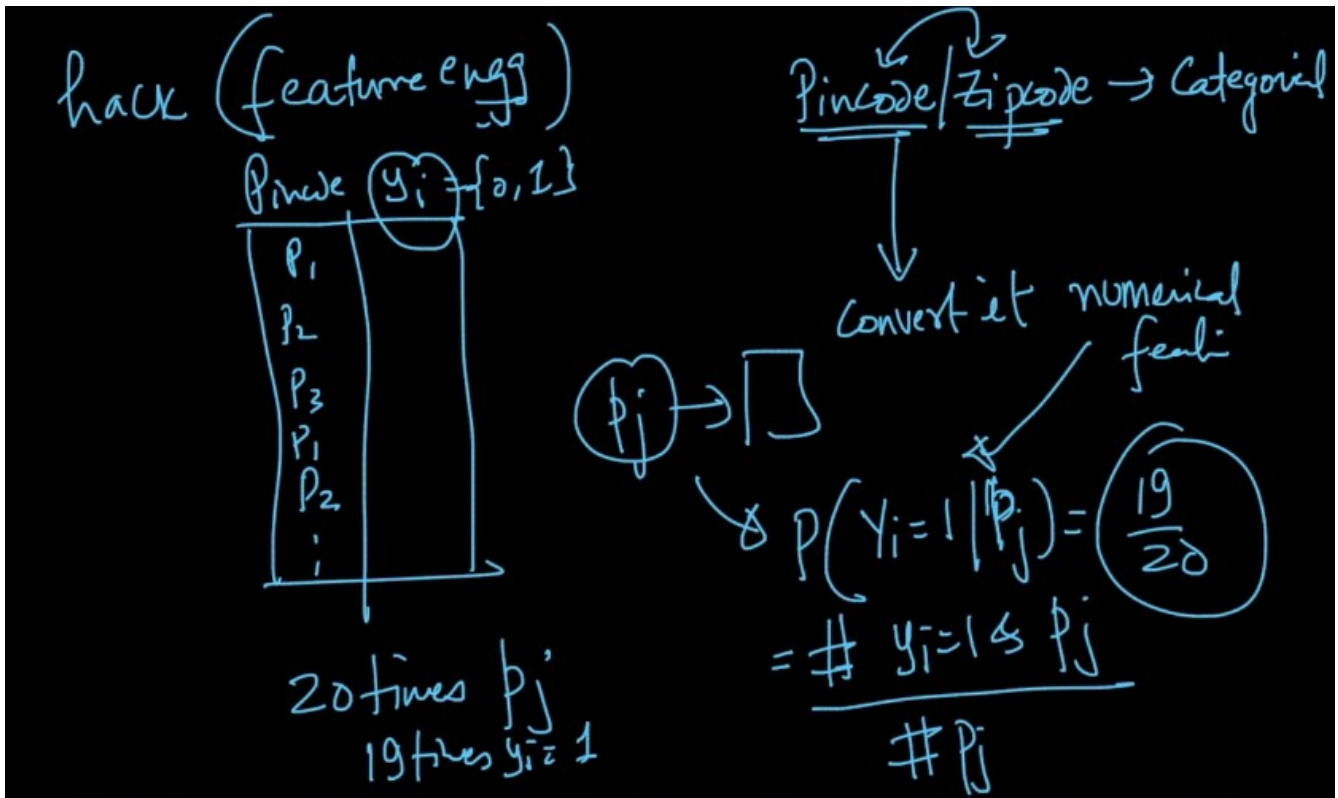 hack (feature engg)
Pincode yi = {0,1}
P1
P2
P3
P1
P2
20 times Pj
19 times yi = 1
Pincode/Zipcode → Categorial
convert it numerical
Pj →
P(Yi=1|Pj) = 19/20
= # yi=1 & Pj
# Pj